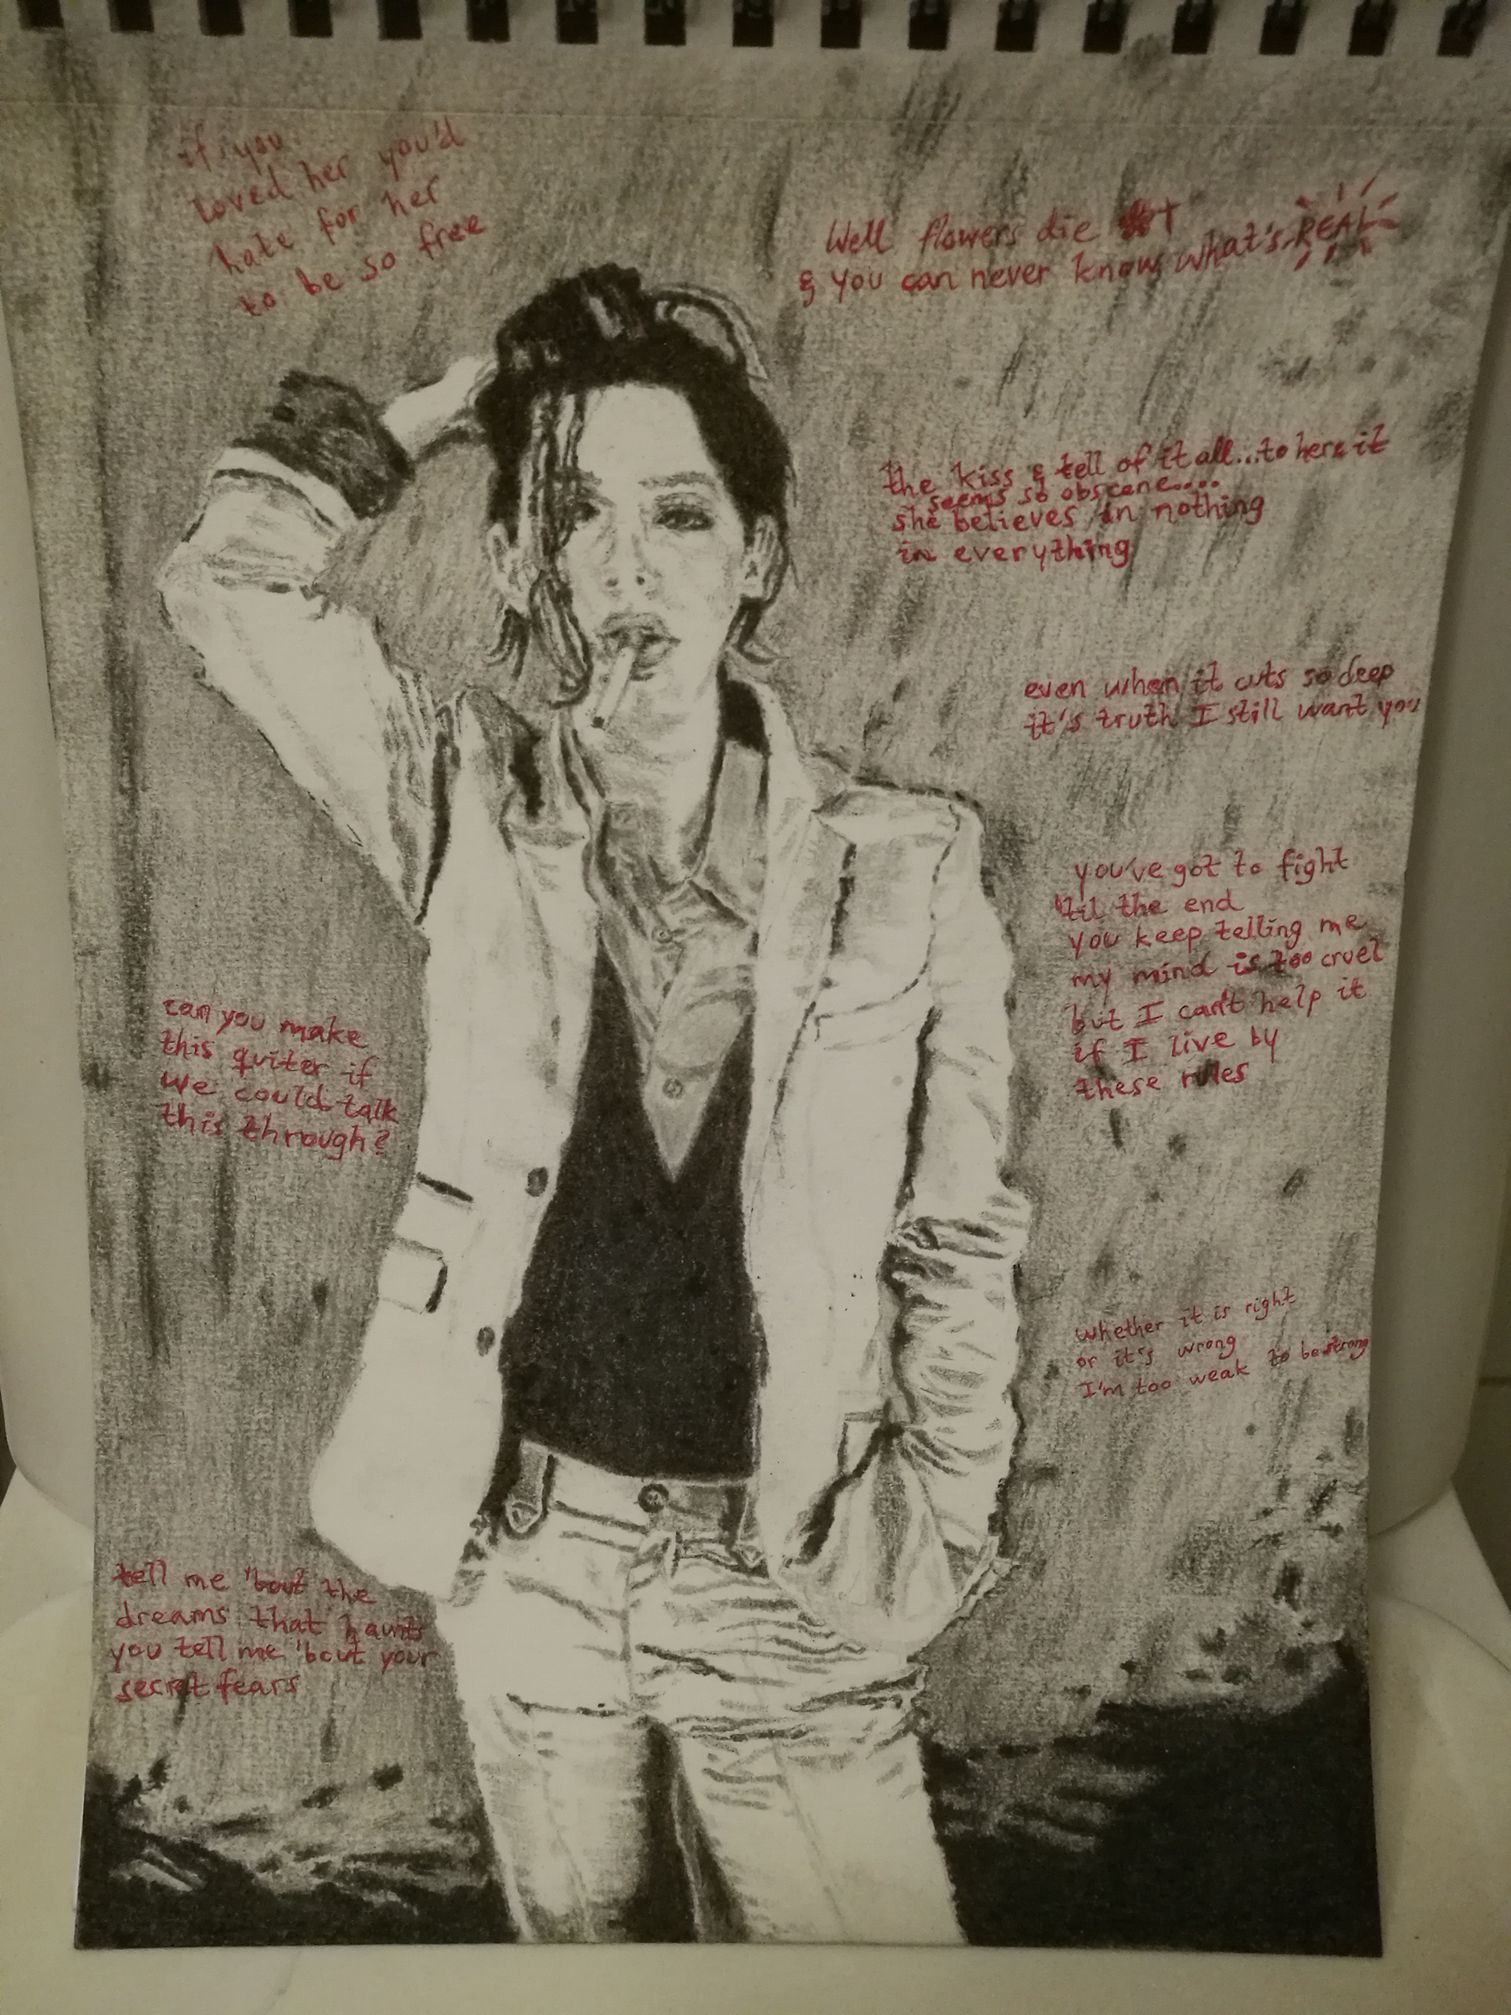 if you
loved her you'd
hate for her
to be so free
Well flowers die
& you can never know what's REAL
the kiss & tell of it all...to here it
seems so obscene....
she believes in nothing
in everything
even when it cuts so deep
it's truth I still want you
you've got to fight
'til the end
you keep telling me
my mind is too cruel
but I can't help it
if I live by
these rules
can you make
this quiter if
we could talk
this through?
whether it is right
or it's wrong
I'm too weak to be strong
tell me 'bout the
dreams that haunts
you tell me 'bout your
secret fears